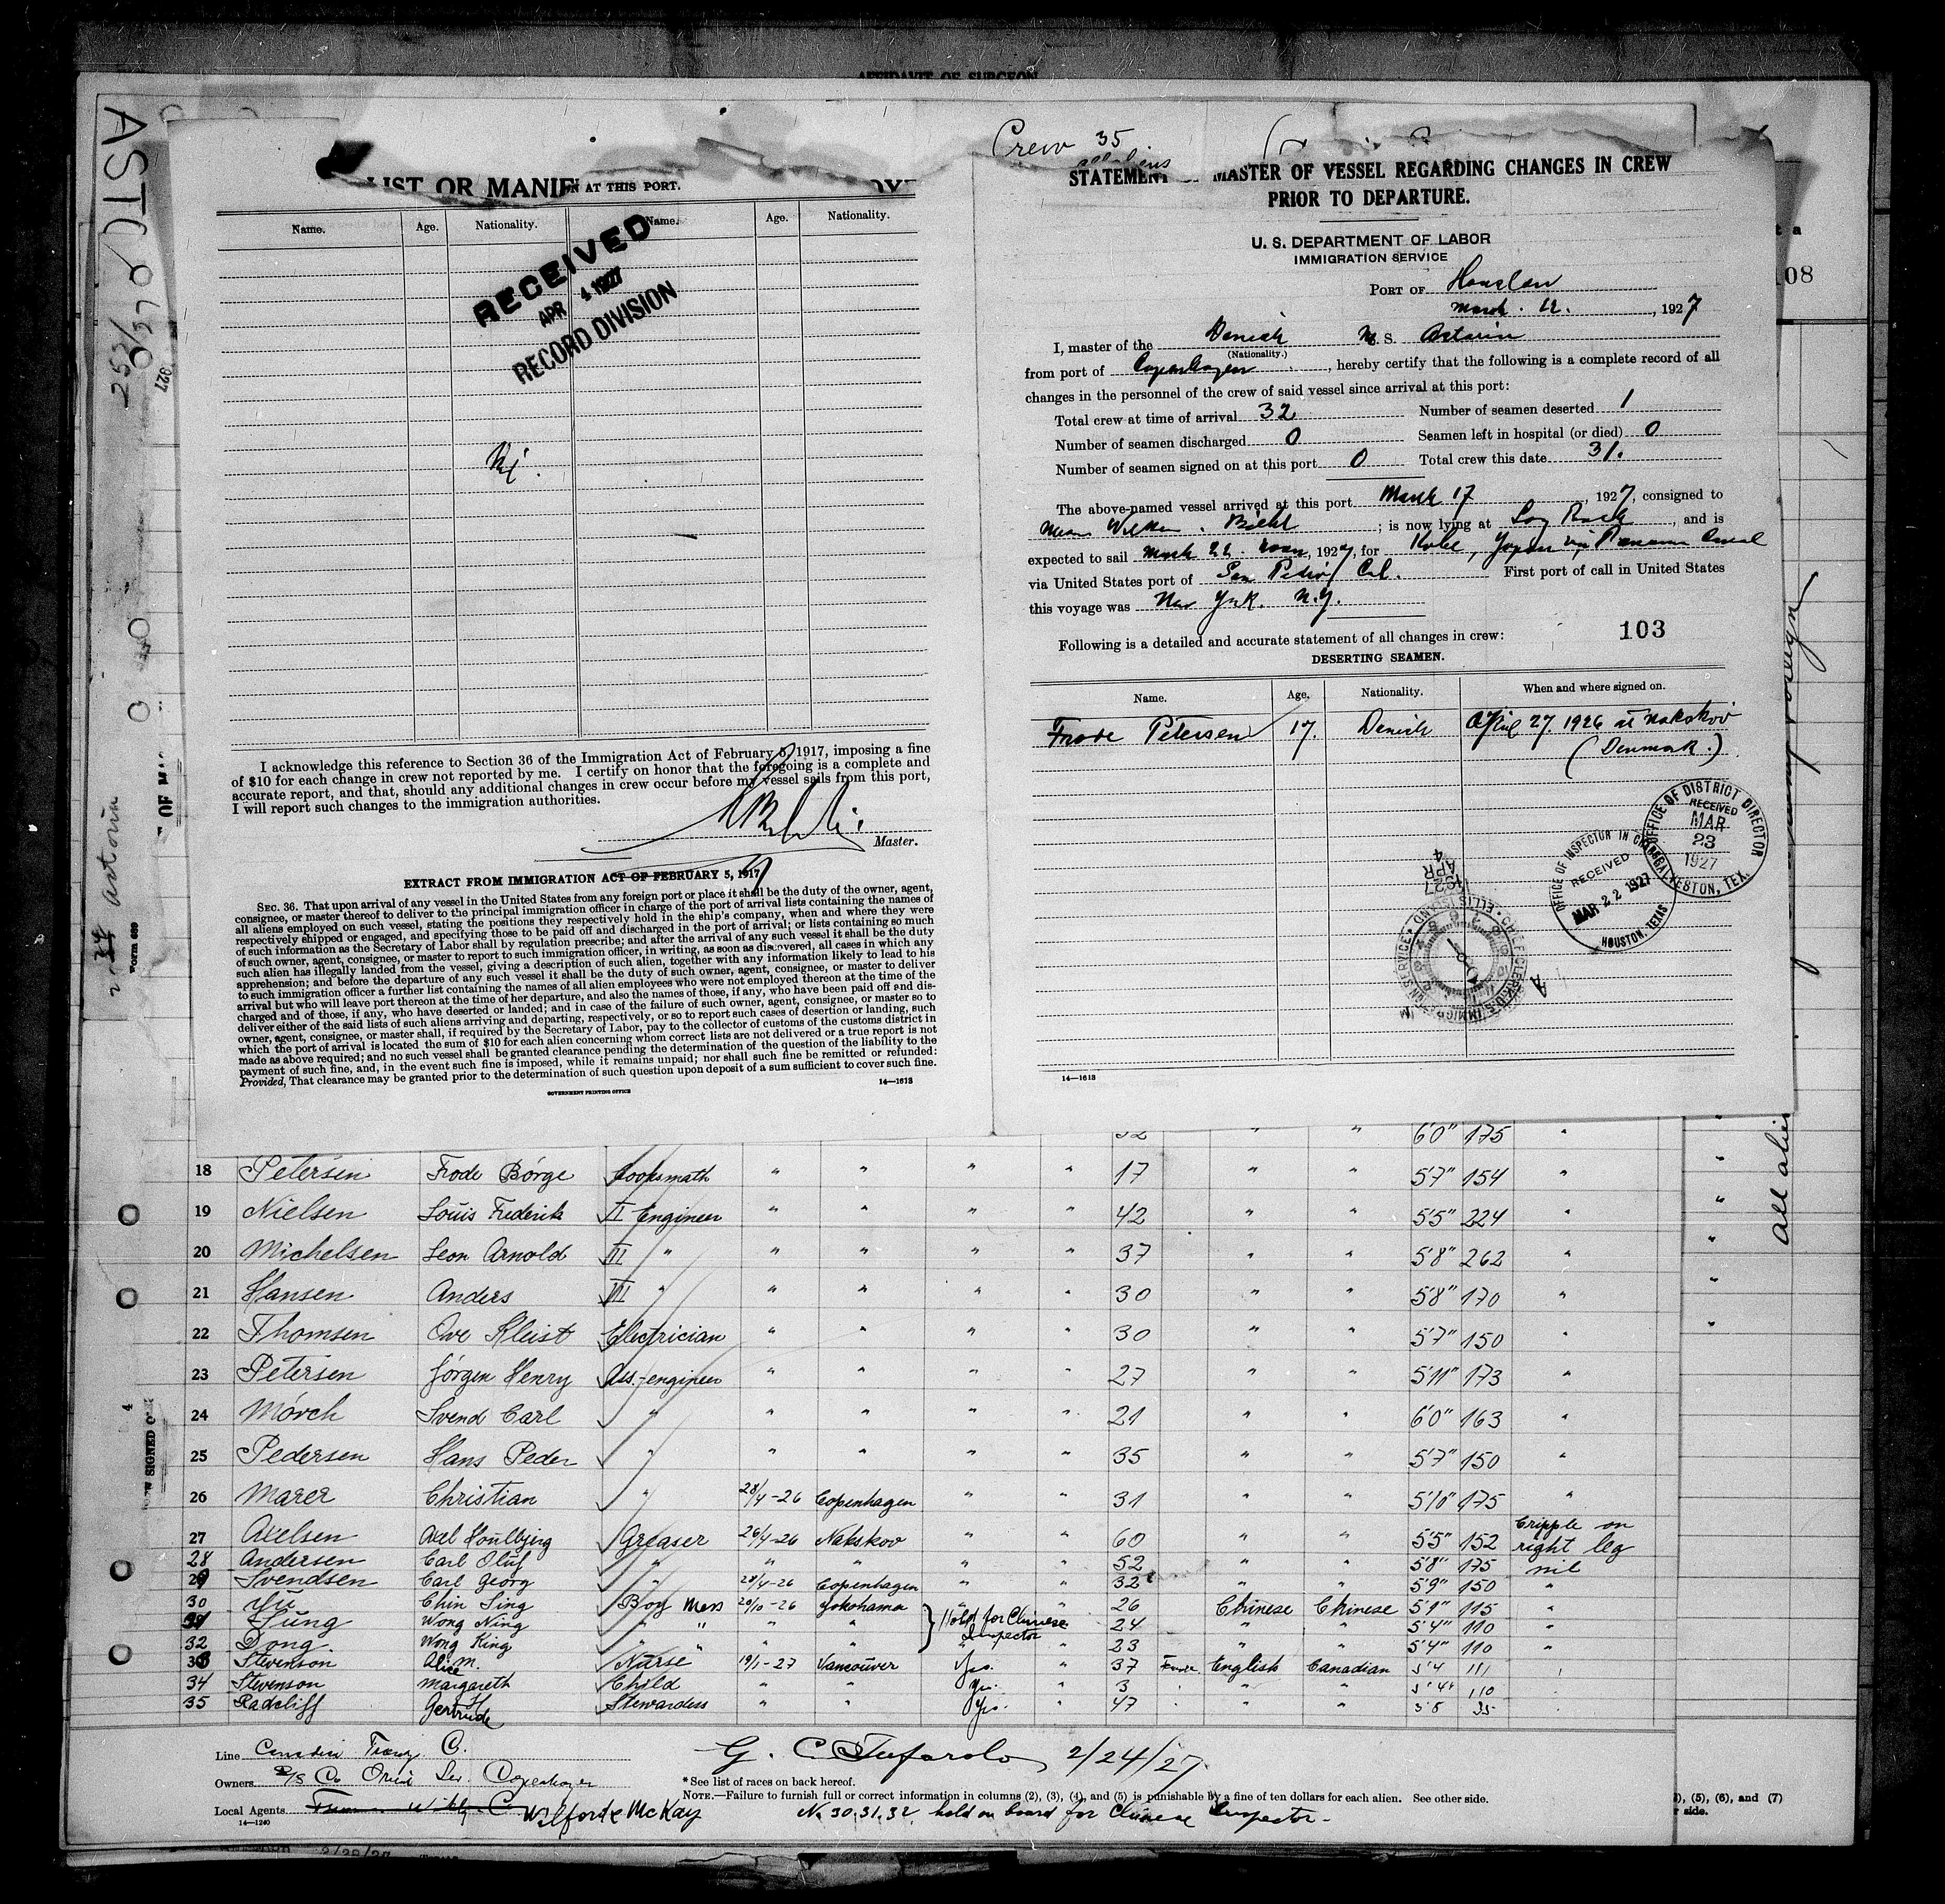 AFFIDAVIT OF SURGEON
Crew 35
LIST OR MANIF
N AT THIS PORT.
Name. Age. Nationality. Name. Age. Nationality.
RECEIVED
APR 4 1927
RECORD DIVISION
I acknowledge this reference to Section 36 of the Immigration Act of February 5, 1917, imposing a fine
of $10 for each change in crew not reported by me. I certify on honor that the foregoing is a complete and
accurate report, and that, should any additional changes in crew occur before my vessel sails from this port,
I will report such changes to the immigration authorities.
Master.
EXTRACT FROM IMMIGRATION ACT OF FEBRUARY 5, 1917
SEC. 36. That upon arrival of any vessel in the United States from any foreign port or place it shall be the duty of the owner, agent,
consignee, or master thereof to deliver to the principal immigration officer in charge of the port of arrival lists containing the names of
all aliens employed on such vessel, stating the positions they respectively hold in the ship's company, when and where they were
respectively shipped or engaged, and specifying those to be paid off and discharged in the port of arrival; or lists containing so much
of such information as the Secretary of Labor shall by regulation prescribe; and after the arrival of any such vessel it shall be the duty
of such owner, agent, consignee, or master to report to such immigration officer, in writing, as soon as discovered, all cases in which any
such alien has illegally landed from the vessel, giving a description of such alien, together with any information likely to lead to his
apprehension; and before the departure of any such vessel it shall be the duty of such owner, agent, consignee, or master to deliver
to such immigration officer a further list containing the names of all alien employees who were not employed thereon at the time of the
arrival but who will leave port thereon at the time of her departure, and also the names of those, if any, who have been paid off and dis-
charged and of those, if any, who have deserted or landed; and in case of the failure of such owner, agent, consignee, or master so to
deliver either of the said lists of such aliens arriving and departing, respectively, or so to report such cases of desertion or landing, such
owner, agent, consignee, or master shall, if required by the Secretary of Labor, pay to the collector of customs of the customs district in
which the port of arrival is located the sum of $10 for each alien concerning whom correct lists are not delivered or a true report is not
made as above required; and no such vessel shall be granted clearance pending the determination of the question of the liability to the
payment of such fine, and, in the event such fine is imposed, while it remains unpaid; nor shall such fine be remitted or refunded:
Provided, That clearance may be granted prior to the determination of such question upon deposit of a sum sufficient to cover such fine.
14—1613
GOVERNMENT PRINTING OFFICE
STATEMENT MASTER OF VESSEL REGARDING CHANGES IN CREW
PRIOR TO DEPARTURE.
U. S. DEPARTMENT OF LABOR
IMMIGRATION SERVICE
PORT OF Houston
March 22, 1927
I, master of the Danish M. S. Astoria
(Nationality.)
from port of Copenhagen, hereby certify that the following is a complete record of all
changes in the personnel of the crew of said vessel since arrival at this port:
Total crew at time of arrival 32 Number of seamen deserted 1
Number of seamen discharged 0 Seamen left in hospital (or died) 0
Number of seamen signed on at this port 0 Total crew this date 31.
The above-named vessel arrived at this port March 17, 1927, consigned to
; is now lying at , and is
expected to sail March 22 noon, 1927, for Kobe, Japan via Panama Canal
via United States port of San Pedro, Cal. First port of call in United States
this voyage was New York. N.Y.
Following is a detailed and accurate statement of all changes in crew: 103
DESERTING SEAMEN.
Name. Age. Nationality. When and where signed on.
Frode Petersen 17. Danish April 27. 1926 at Nakskov
(Denmark.)
OFFICE OF DISTRICT DIRECTOR
RECEIVED
MAR
23
1927
GALVESTON, TEX.
OFFICE OF INSPECTOR IN CHARGE
RECEIVED
MAR 22 1927
HOUSTON, TEXAS
1927
APR
4
14—1613
32 " " 6'0" 175 "
18 Petersen Frode Börge Cooksmath " " " " 17 " " 5'7" 154 "
19 Nielsen Louis Frederik II Engineer " " " " 42 " " 5'5" 224 "
20 Michelsen Leon Arnold III " " " " " 37 " " 5'8" 262 "
21 Hansen Anders III " " " " " 30 " " 5'8" 170 "
22 Thomsen Ove Kleist Electrician " " " " 30 " " 5'7" 150 "
23 Petersen Jörgen Henry Ass.-engineer " " " " 27 " " 5'11" 173 "
24 Mörch Svend Carl " " " " " 21 " " 6'0" 163 "
25 Pedersen Hans Peder " " " " " 35 " " 5'7" 150 "
26 Marer Christian " 28/4-26 Copenhagen " " 31 " " 5'10" 175 "
27 Axelsen Axel Houlbjerg Greaser 26/4-26 Nakskov " " 60 " " 5'5" 152 Cripple on right leg
28 Andersen Carl Oluf " " " " " 52 " " 5'8" 175 nil
29 Svendsen Carl Georg " 28/4-26 Copenhagen " " 32 " " 5'9" 150 "
30 Yü Chin Sing Boy Mess 20/10-26 Yokohama " " 26 Chinese Chinese 5'1" 115 "
31 Fung Wong Ning " " " " Hold for Chinese 24 " " 5'4" 110 "
32 Dong Wong King " " " " Inspector " 23 " " 5'4" 110 "
33 Stevenson Alice M. Nurse 19/1-27 Vancouver Yes. " 37 English Canadian 5'4 111
34 Stevenson Margareth Child " " Yes. " 3 " " 110
35 Radcliff Gertrude H Stewardess " " Yes. " 47 " "
Line Canadian
Owners Copenhagen
Local Agents Wilford & McKay
14—1240
G. C. Tufarolo 2/24/27.
*See list of races on back hereof.
NOTE.—Failure to furnish full or correct information in columns (2), (3), (4), and (5) is punishable by a fine of ten dollars for each alien. See other side.
No 30.31.32. held on board for Chinese Inspector.
), (5), (6), and (7)
r side.
Form 689
Astoria